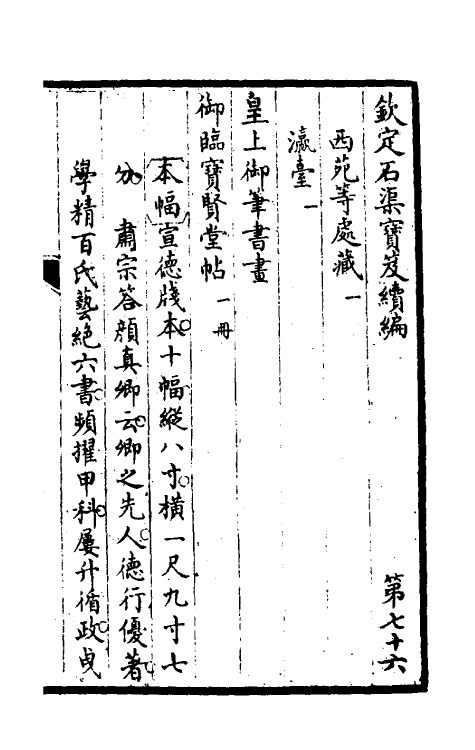 欽定石渠寶笈續編 第七十六
西苑等處藏一
瀛臺一
皇上御筆書畫
御臨寶賢堂帖一冊
本幅宣德牋本十幅縱八寸橫一尺九寸七
分 肅宗答顔真卿云卿之先人德行優著
學精百氏藝絶六書頻擢甲科屢升循政